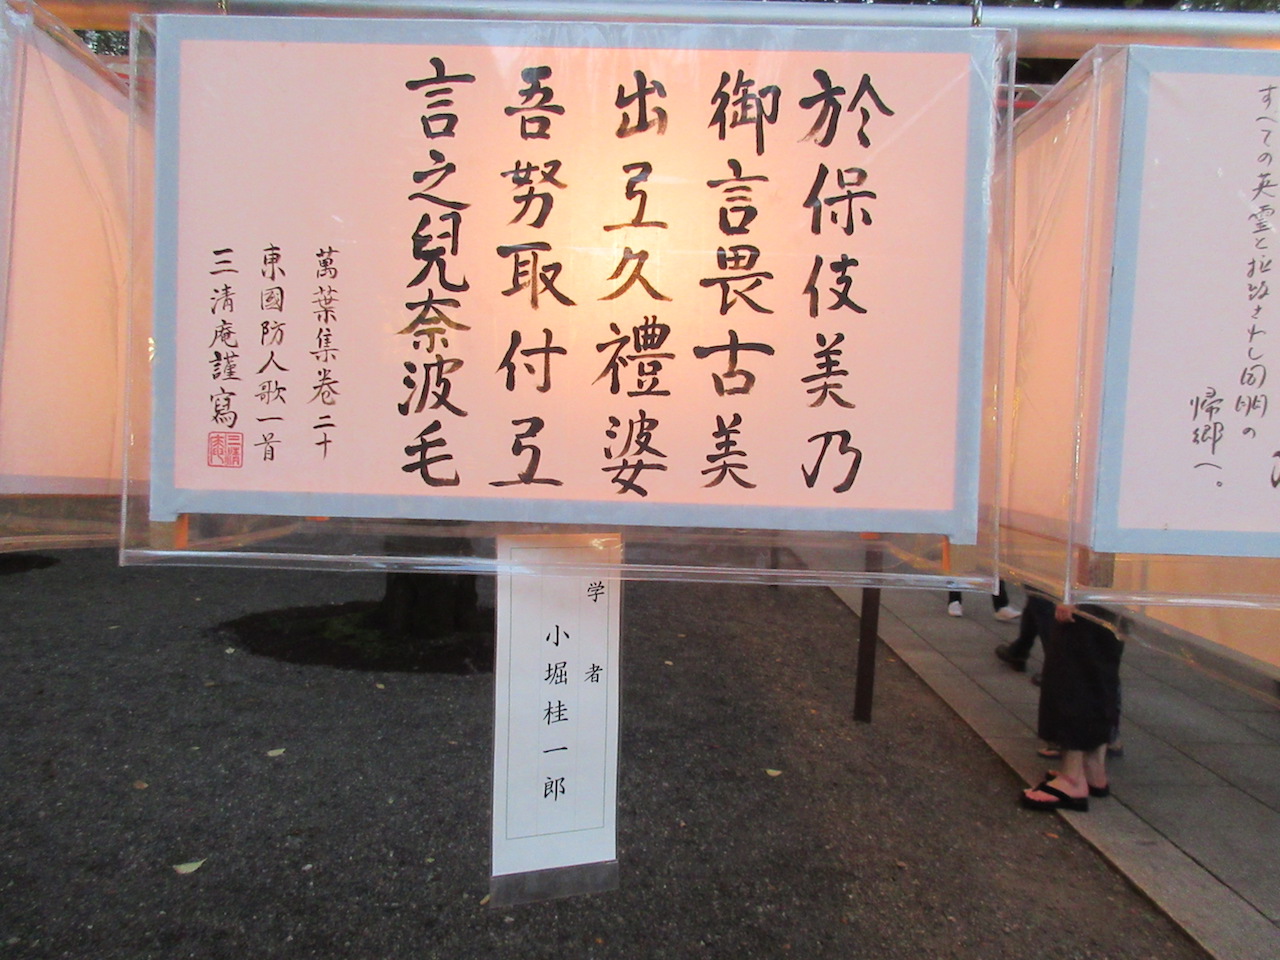 すべての英霊と拉致されし同胞の
帰郷へ。
於保伎美乃
御言畏古美
出弖久禮婆
吾努取付弖
言之兒奈波毛
萬葉集卷二十
東國防人歌一首
三清庵謹寫
学者
小堀桂一郎